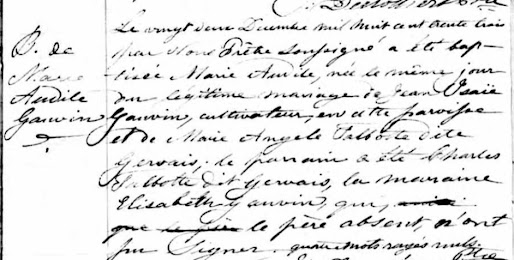 B. de
Marie
Audile
Gauvin
Le vingt deux Decembre mil huit cent trente trois
par Nous Prêtre soussigné a été bap-
-tisée Marie Audile, née le même jour
du légitime mariage de Jean Isaie
Gauvin, cultivateur, en cette paroisse
et de Marie Angele Talbotte dite
Gervais; le parrain a été Charles
Talbotte dit Gervais, la marraine
Elisabeth Gauvin, qui,
que le père le père absent, n'ont
pu signer. quatre mots rayés nuls.